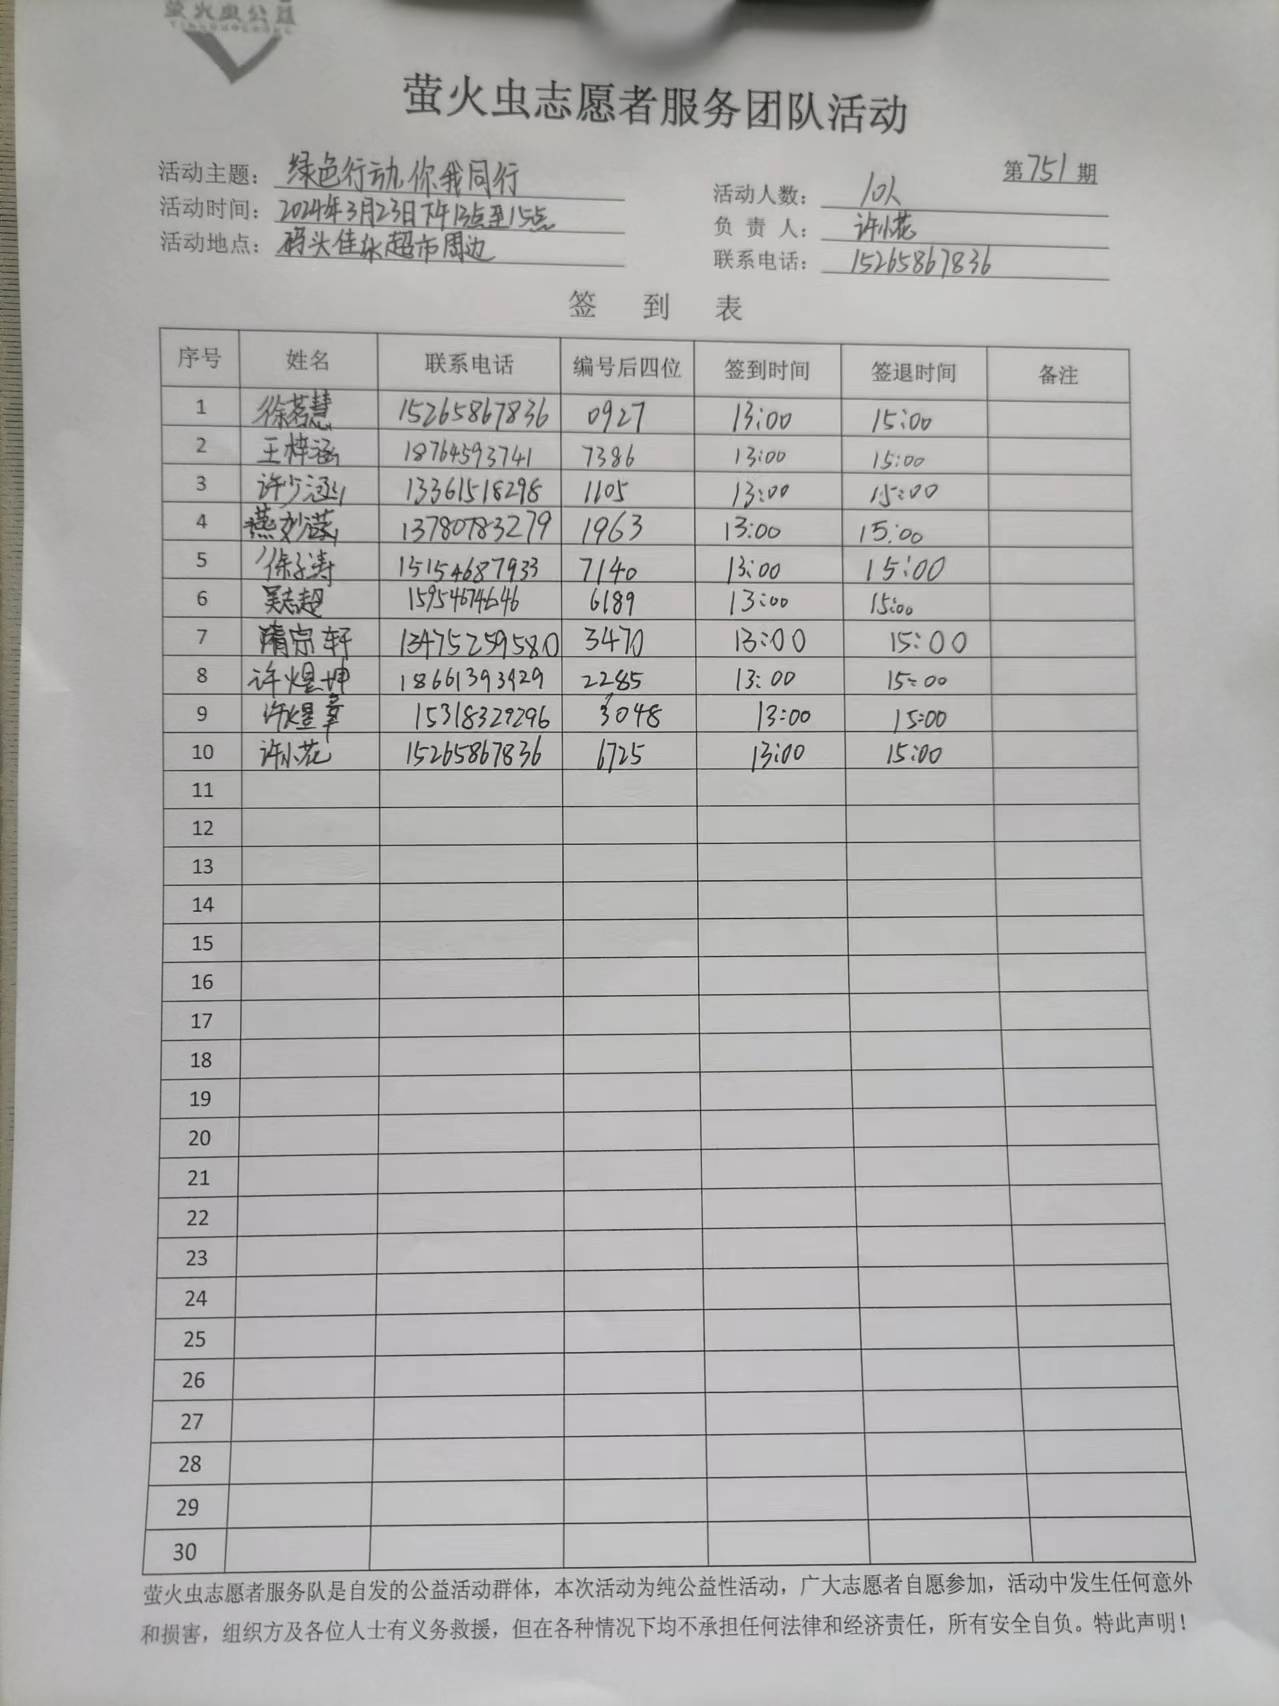 萤火虫公益
萤火虫志愿者服务团队活动
第751期
活动主题：绿色行动,你我同行
活动人数：10人
活动时间：2024年3月23日下午13点至15点
负责人：许小花
活动地点：码头佳乐超市周边
联系电话：15265867836
签到表
序号 姓名 联系电话 编号后四位 签到时间 签退时间 备注
1 徐若慧 15265867836 0927 13:00 15:00
2 王梓涵 18764593741 7386 13:00 15:00
3 许少涵 13361518298 1105 13:00 15:00
4 燕妙涵 13780783279 1963 13:00 15:00
5 徐子涛 15154687933 7140 13:00 15:00
6 吴志超 15954674646 6189 13:00 15:00
7 隋宗轩 13475259580 3470 13:00 15:00
8 许煜坤 18661393429 2285 13:00 15:00
9 许煜章 15318329296 3048 13:00 15:00
10 许小花 15265867836 6725 13:00 15:00
11
12
13
14
15
16
17
18
19
20
21
22
23
24
25
26
27
28
29
30
萤火虫志愿者服务队是自发的公益活动群体，本次活动为纯公益性活动，广大志愿者自愿参加，活动中发生任何意外
和损害，组织方及各位人士有义务救援，但在各种情况下均不承担任何法律和经济责任，所有安全自负。特此声明！